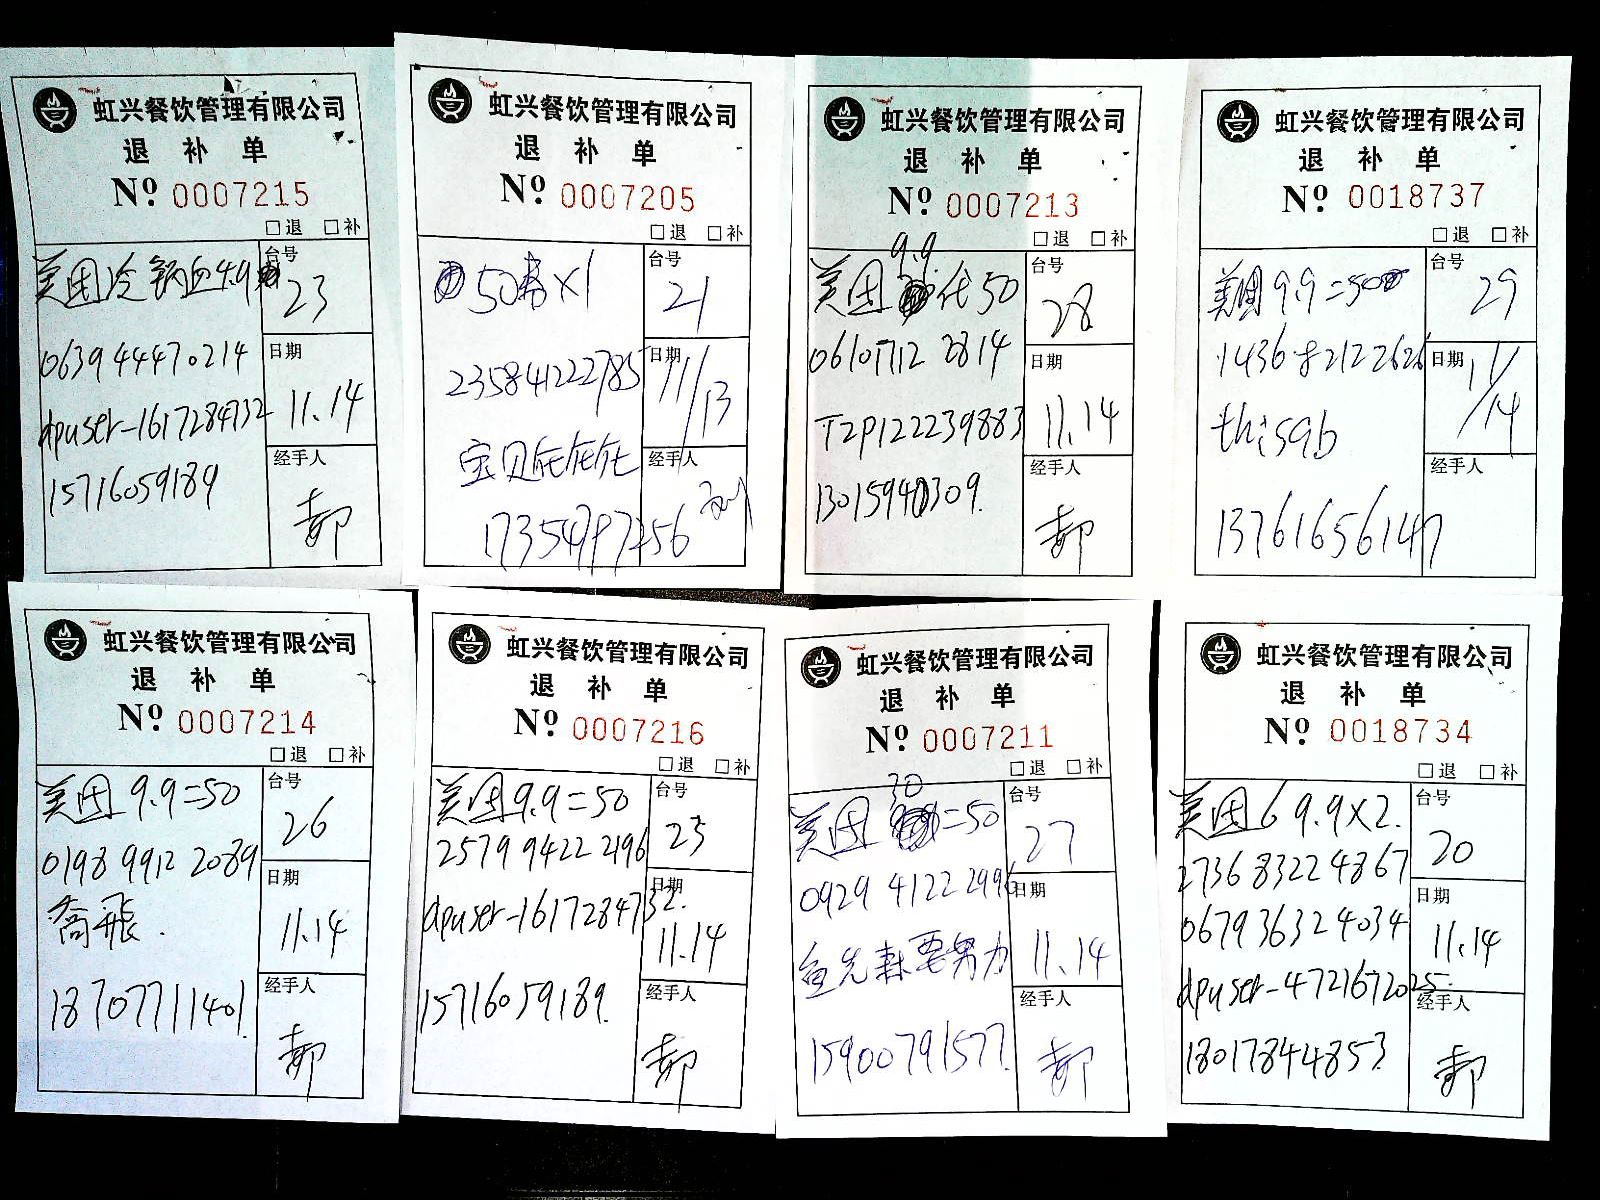 虹兴餐饮管理有限公司
退 补 单
Nº 0007215
□退 □补
美团冷锅血4.9
台号
23
063944470214
日期
11.14
dpuser-1617284732
15716059189
经手人
郝
虹兴餐饮管理有限公司
退 补 单
Nº 0007205
□退 □补
50 ×1
台号
21
235841222785
日期
11/13
宝贝仛仛仛
经手人
17354797256
虹兴餐饮管理有限公司
退 补 单
Nº 0007213
□退 □补
9.9
美团 代50
台号
28
061017122814
日期
11.14
TZP122239883
13015940309.
经手人
郝
虹兴餐饮管理有限公司
退 补 单
Nº 0018737
□退 □补
美团9.9=50
台号
29
143682122626
日期
11/14
thisgb
经手人
13761656147
虹兴餐饮管理有限公司
退 补 单
Nº 0007214
□退 □补
美团9.9=50
台号
26
0198 9912 2089
日期
11.14
乔飛.
18707711401.
经手人
郝
虹兴餐饮管理有限公司
退 补 单
Nº 0007216
□退 □补
美团9.9=50
台号
25
2579 9422 2196
日期
11.14
dpuser-1617284732.
15716059189.
经手人
郝
虹兴餐饮管理有限公司
退 补 单
Nº 0007211
□退 □补
30
美团 =50
台号
27
0929 4122 2996
日期
11.14
鱼先森要努力
15900791577.
经手人
郝
虹兴餐饮管理有限公司
退 补 单
Nº 0018734
□退 □补
美团69.9×2.
台号
20
273683224867
067936324034
日期
11.14
dpuser-4721672025.
18017844853.
经手人
郝